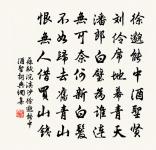 徐邈能中酒聖賢
劉伶席地幕青天
潘郎白璧為誰連
無可奈何新白髮
不如歸去舊青山
恨無人借買山錢
蘇軾浣溪沙徐邈能中
酒聖賢